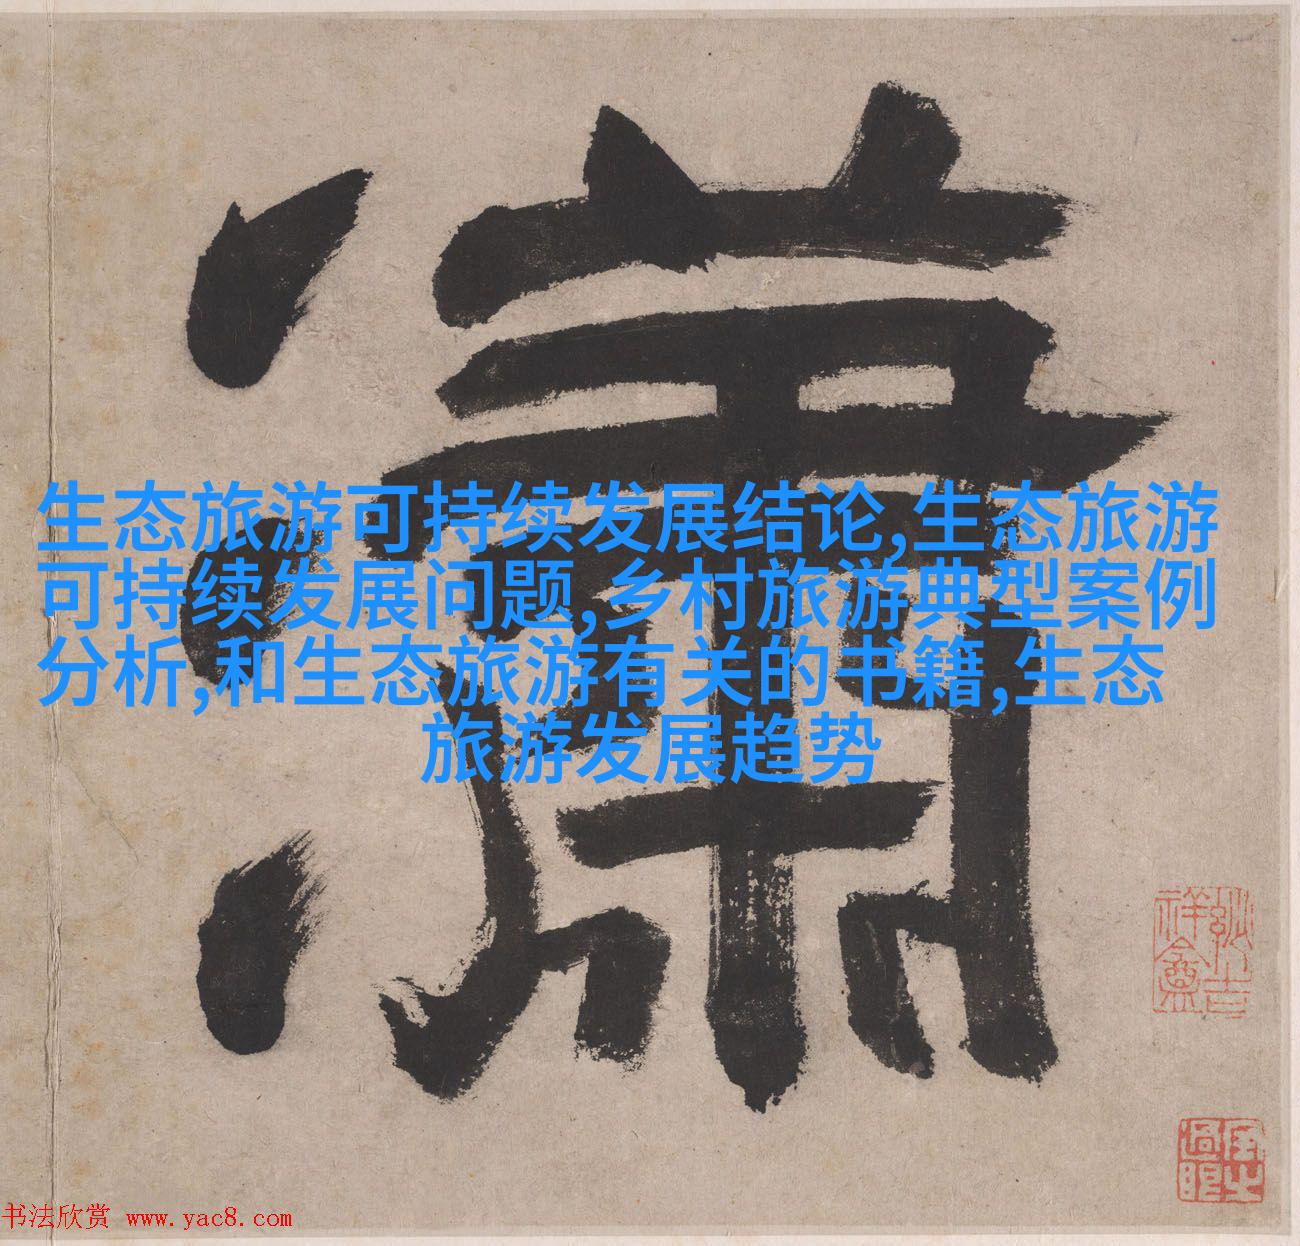 瀟
生态旅游可持续发展结论,生态旅游
可持续发展问题,乡村旅游典型案例
分析,和生态旅游有关的书籍,生态
旅游发展趋势
书法欣赏 www.yac8.com